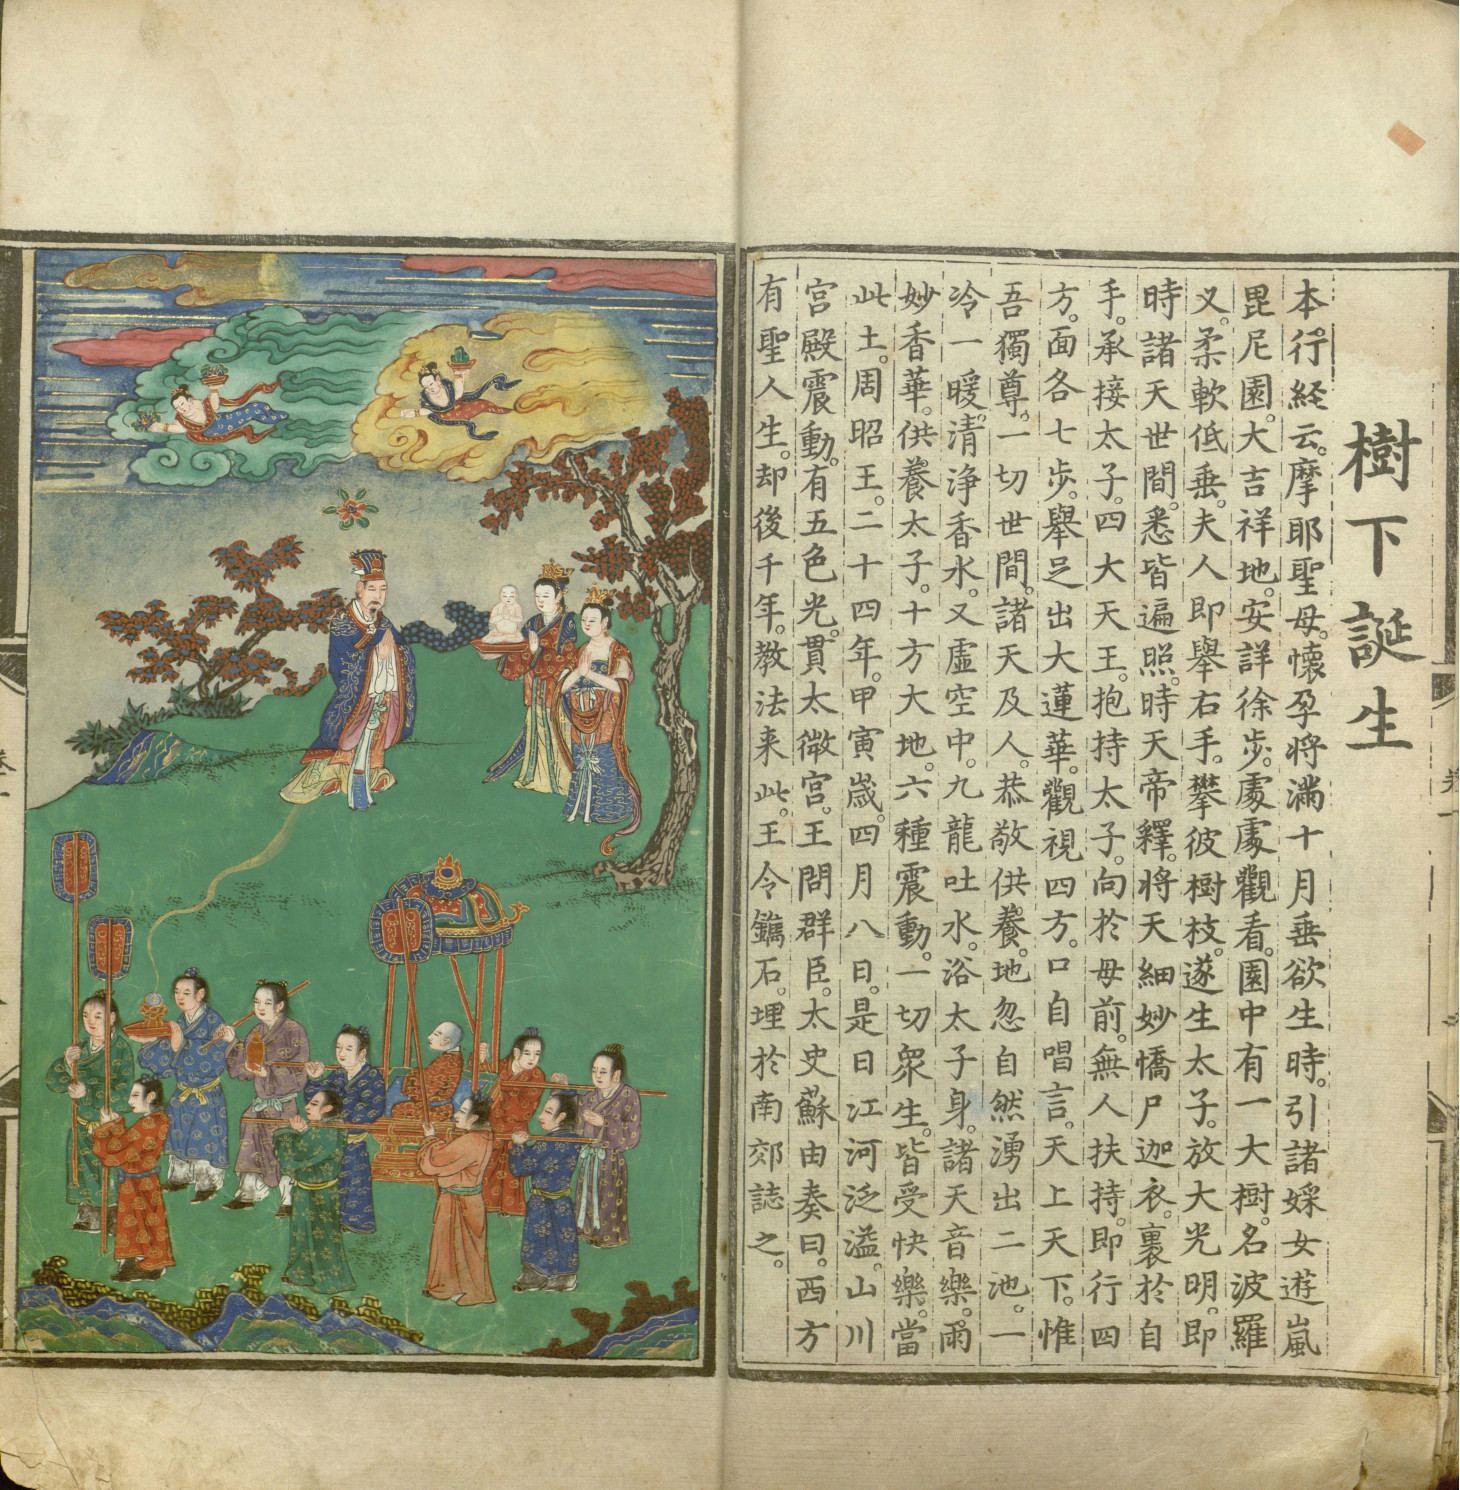 樹下誕生
本行経云。摩耶聖母。懷孕將滿十月垂欲生時。引諸婇女遊嵐
毘尼園。大吉祥地。安詳徐步。處處觀看。園中有一大樹。名波羅
叉。柔軟低垂。夫人即舉右手。攀彼樹枝。遂生太子。放大光明。即
時諸天世間。悉皆遍照。時天帝釋。將天細妙憍尸迦衣。裹於自
手。承接太子。四大天王。抱持太子。向於母前。無人扶持。即行四
方。面各七步。舉足出大蓮華。觀視四方。口自唱言。天上天下。惟
吾獨尊。一切世間。諸天及人。恭敬供養。地忽自然湧出二池。一
冷一暖。清浄香水。又虛空中。九龍吐水。浴太子身。諸天音樂。雨
妙香華。供養太子。十方大地。六種震動。一切眾生。皆受快樂。當
此土。周昭王。二十四年。甲寅歲。四月八日。是日江河泛溢。山川
宮殿震動。有五色光。貫太微宮。王問群臣。太史蘇由奏曰。西方
有聖人生。却後千年。教法来此。王令鐫石。埋於南郊誌之。